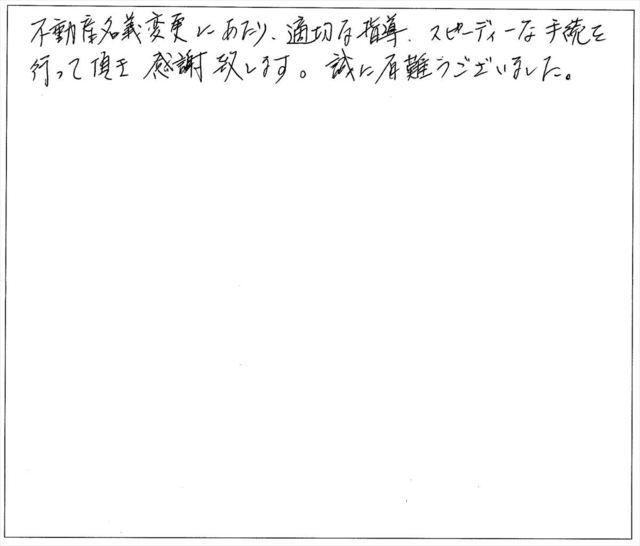 不動産名義変更にあたり、適切な指導、スピーディーな手続を
行って頂き感謝致します。誠に有難うございました。